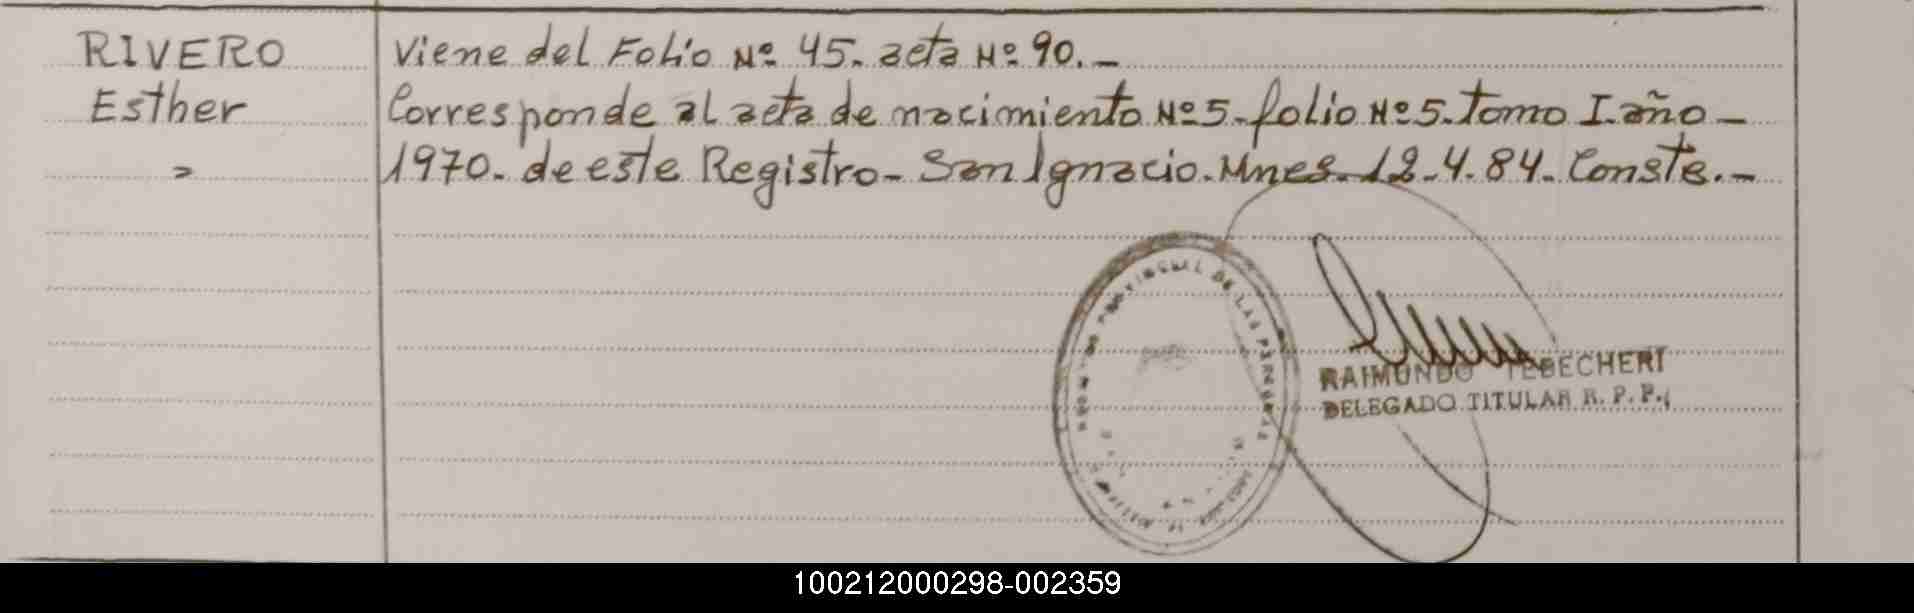 RIVERO
Esther
"
Viene del Folio Nº 45. acta Nº 90.-
Corresponde al acta de nacimiento Nº 5-folio Nº 5.tomo I.año-
1970. de este Registro- San Ignacio. Mnes. 12-4.84. Conste.-
PROVINCIAL DE LAS PERSONAS
RAIMUNDO TEBECHERI
DELEGADO TITULAR R. P. P.
100212000298-002359